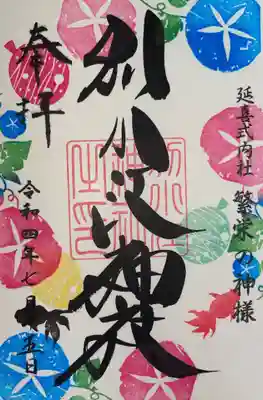 延喜式内社 繁栄の神様
別小江神社
奉拝
令和四年七月十五日